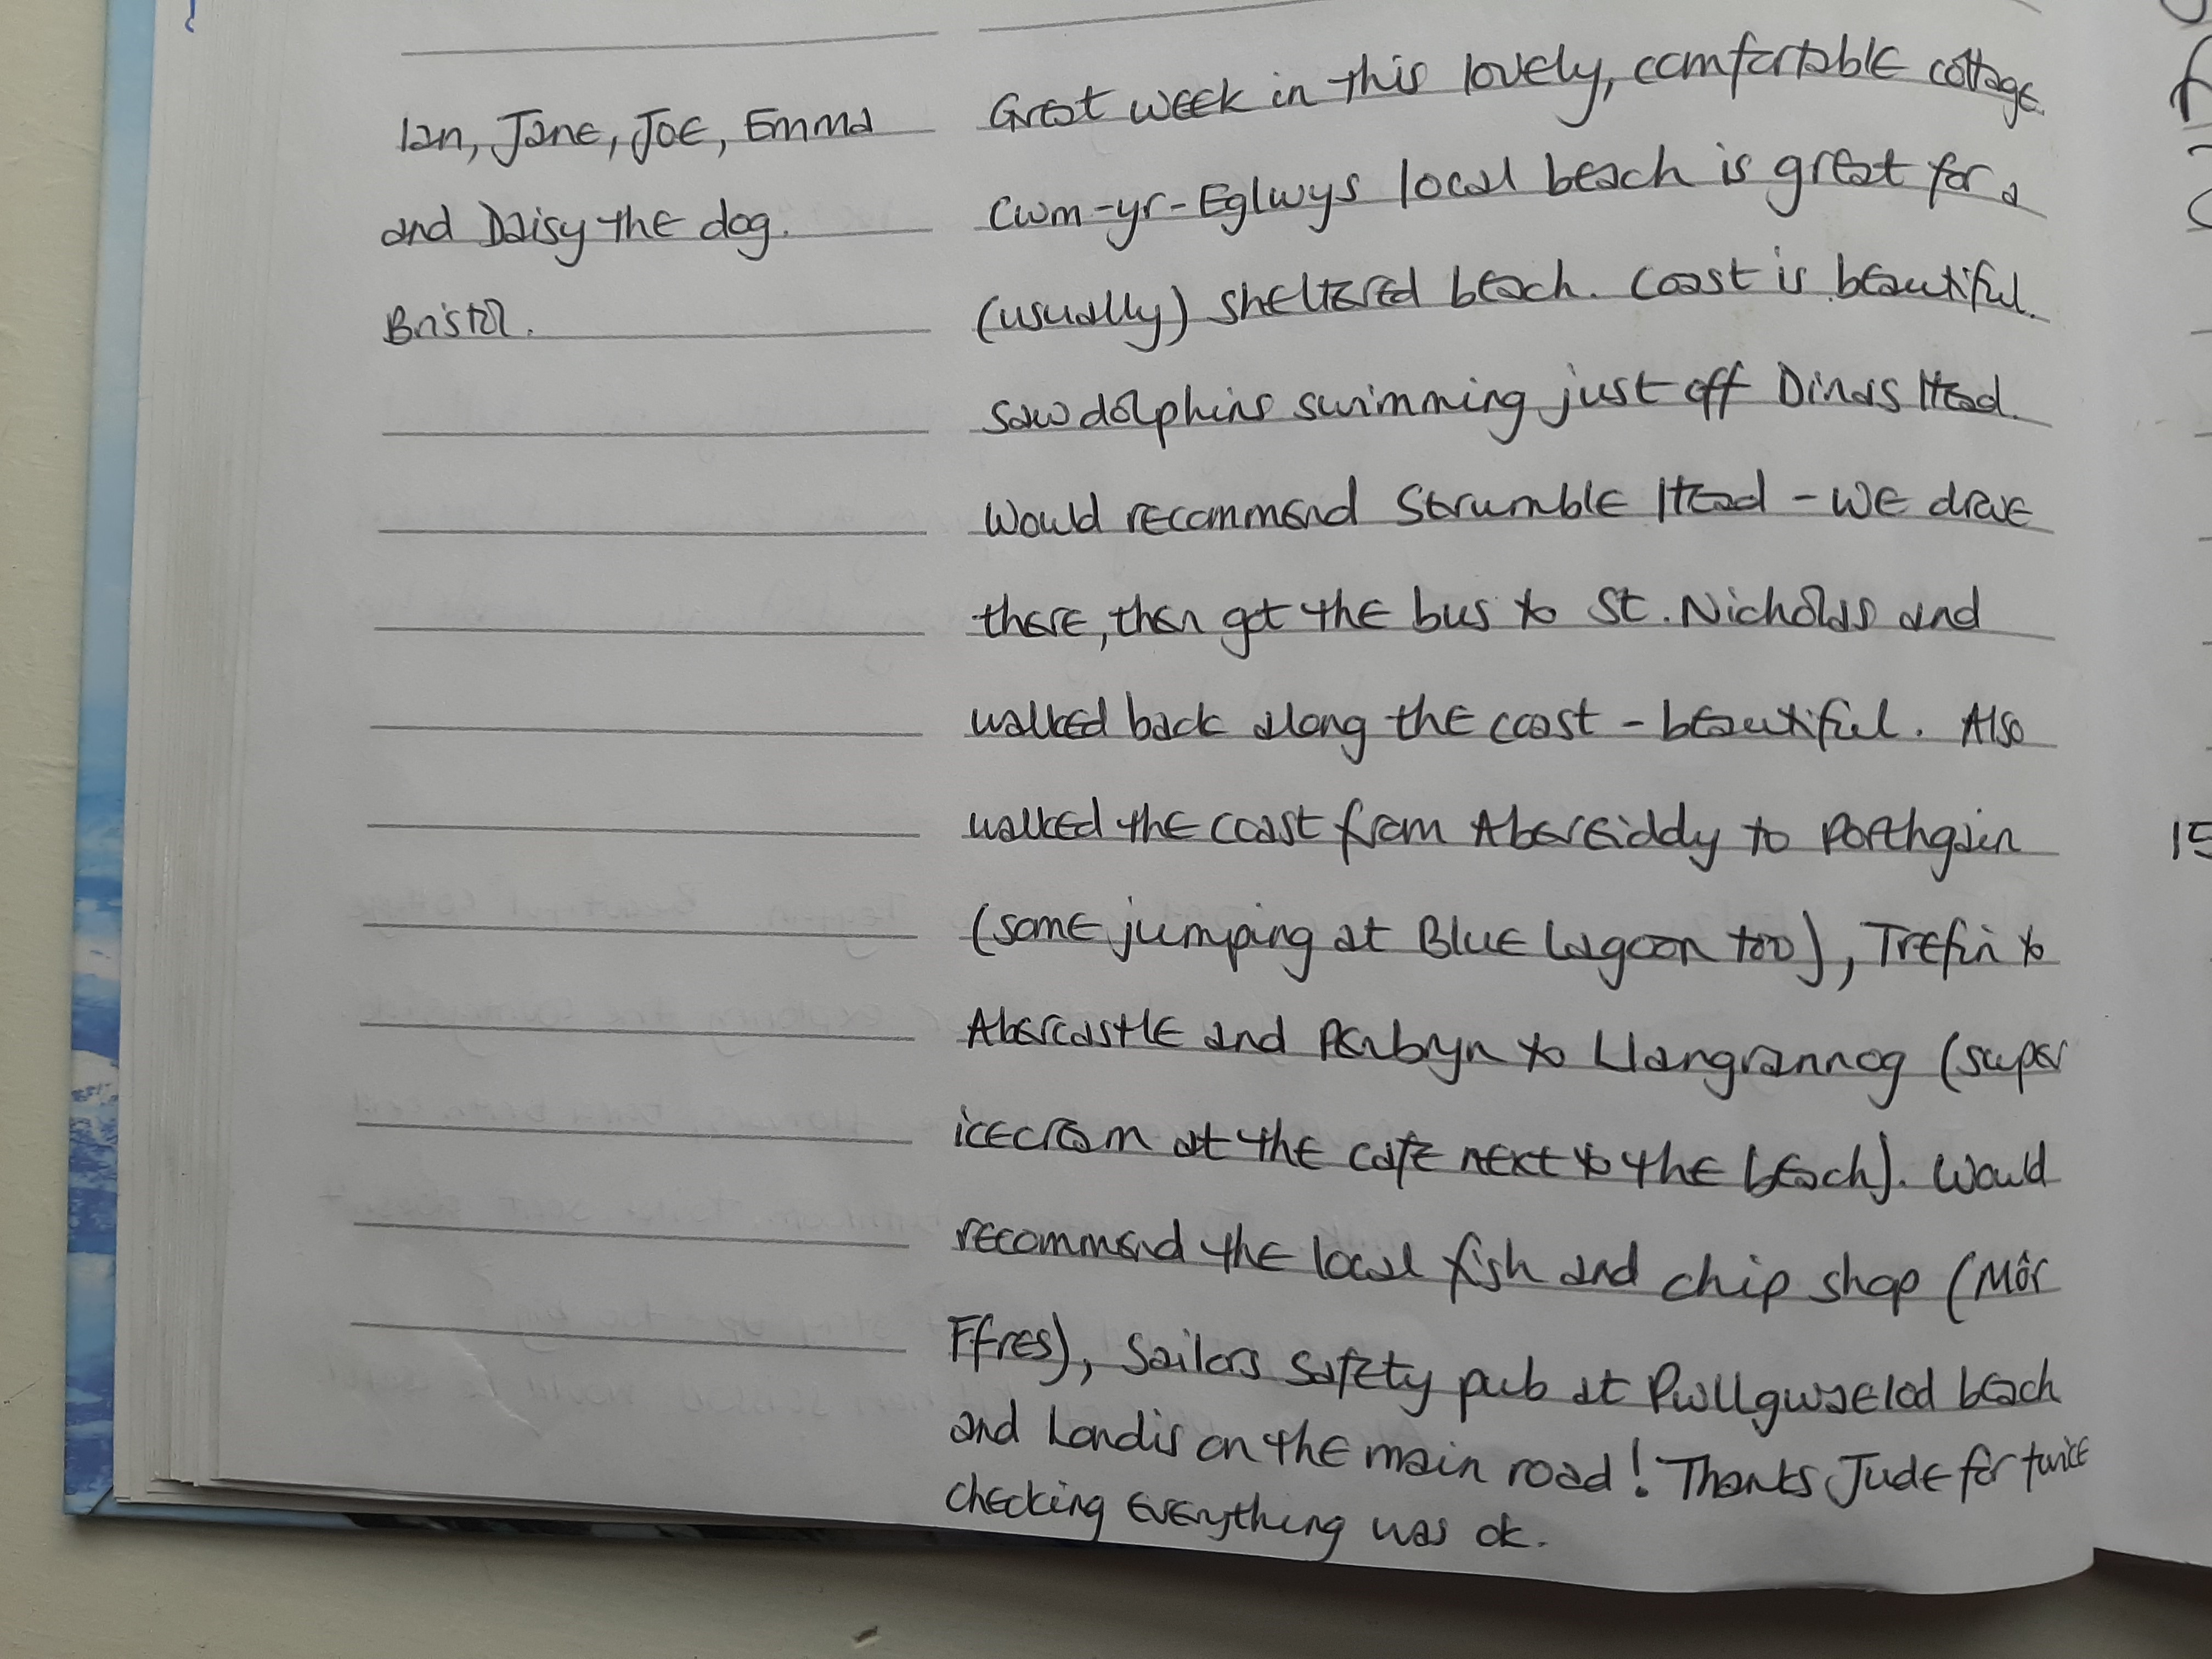 Ian, Jane, Joe, Emma
and Daisy the dog.
Bristol.
Great week in this lovely, comfortable cottage.
Cwm-yr-Eglwys local beach is great for a
(usually) sheltered beach. Coast is beautiful.
Saw dolphins swimming just off Dinas Head.
Would recommend Strumble Head - we drove
there, then got the bus to St. Nicholas and
walked back along the coast - beautiful. Also
walked the coast from Abereiddy to Porthgain
(some jumping at Blue Lagoon too), Trefin to
Abercastle and Penbryn to Llangrannog (super
icecream at the cafe next to the beach). Would
recommend the local fish and chip shop (Môr
Ffres), Sailors Safety pub at Pwllgwaelod beach
and Londis on the main road! Thanks Jude for twice
checking everything was ok.
15